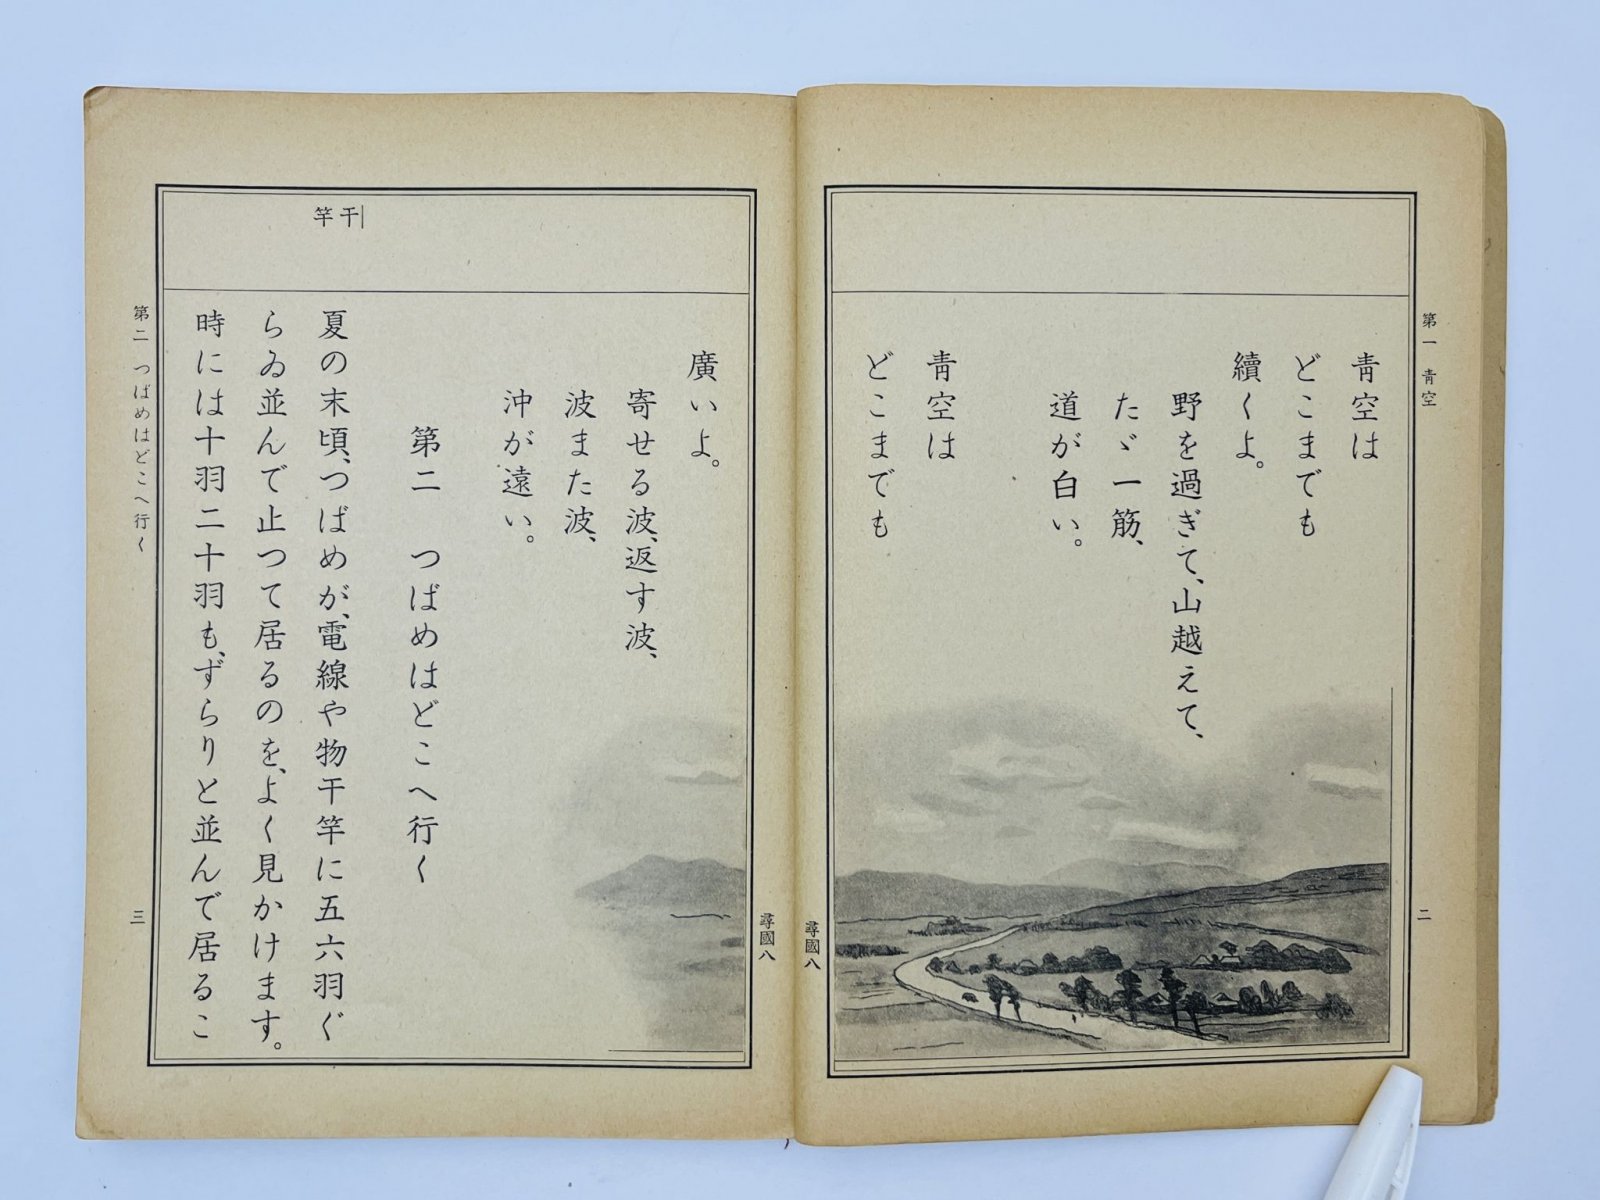 第一 青空
二
青空は
どこまでも
續くよ。
野を過ぎて、山越えて、
たゞ一筋、
道が白い。
青空は
どこまでも
尋國八
尋國八
廣いよ。
寄せる波、返す波、
波また波、
沖が遠い。
第二 つばめはどこへ行く
干竿
夏の末頃、つばめが、電線や物干竿に五六羽ぐ
らゐ並んで止つて居るのを、よく見かけます。
時には十羽二十羽も、ずらりと並んで居るこ
第二 つばめはどこへ行く
三